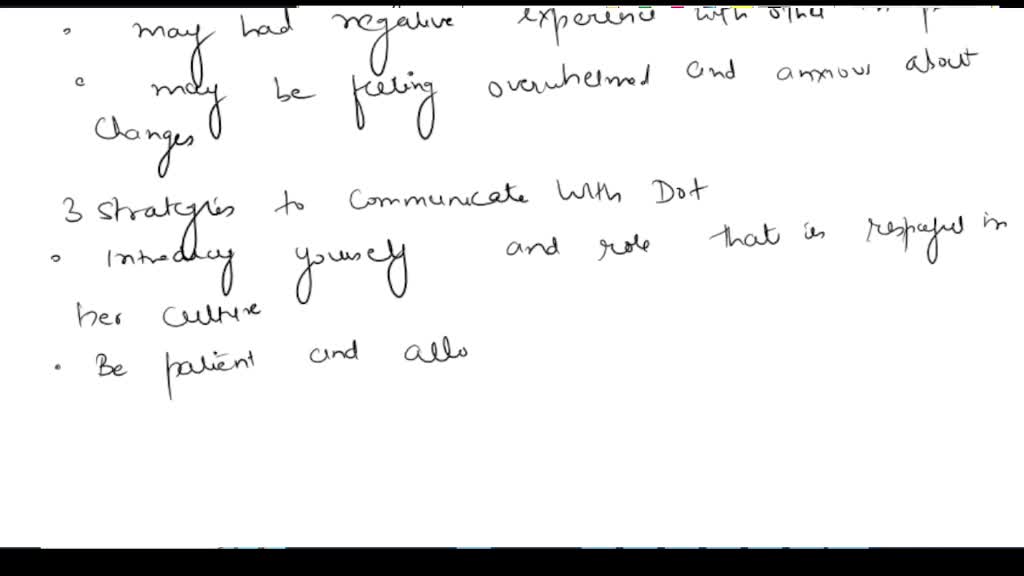 • may had negative experience with other
• may be feeling overwhelmed and anxious about
changes
3 strategies to communicate with Dot
• Introducy yourself and role that is respecful in
her culture
• Be patient and allo